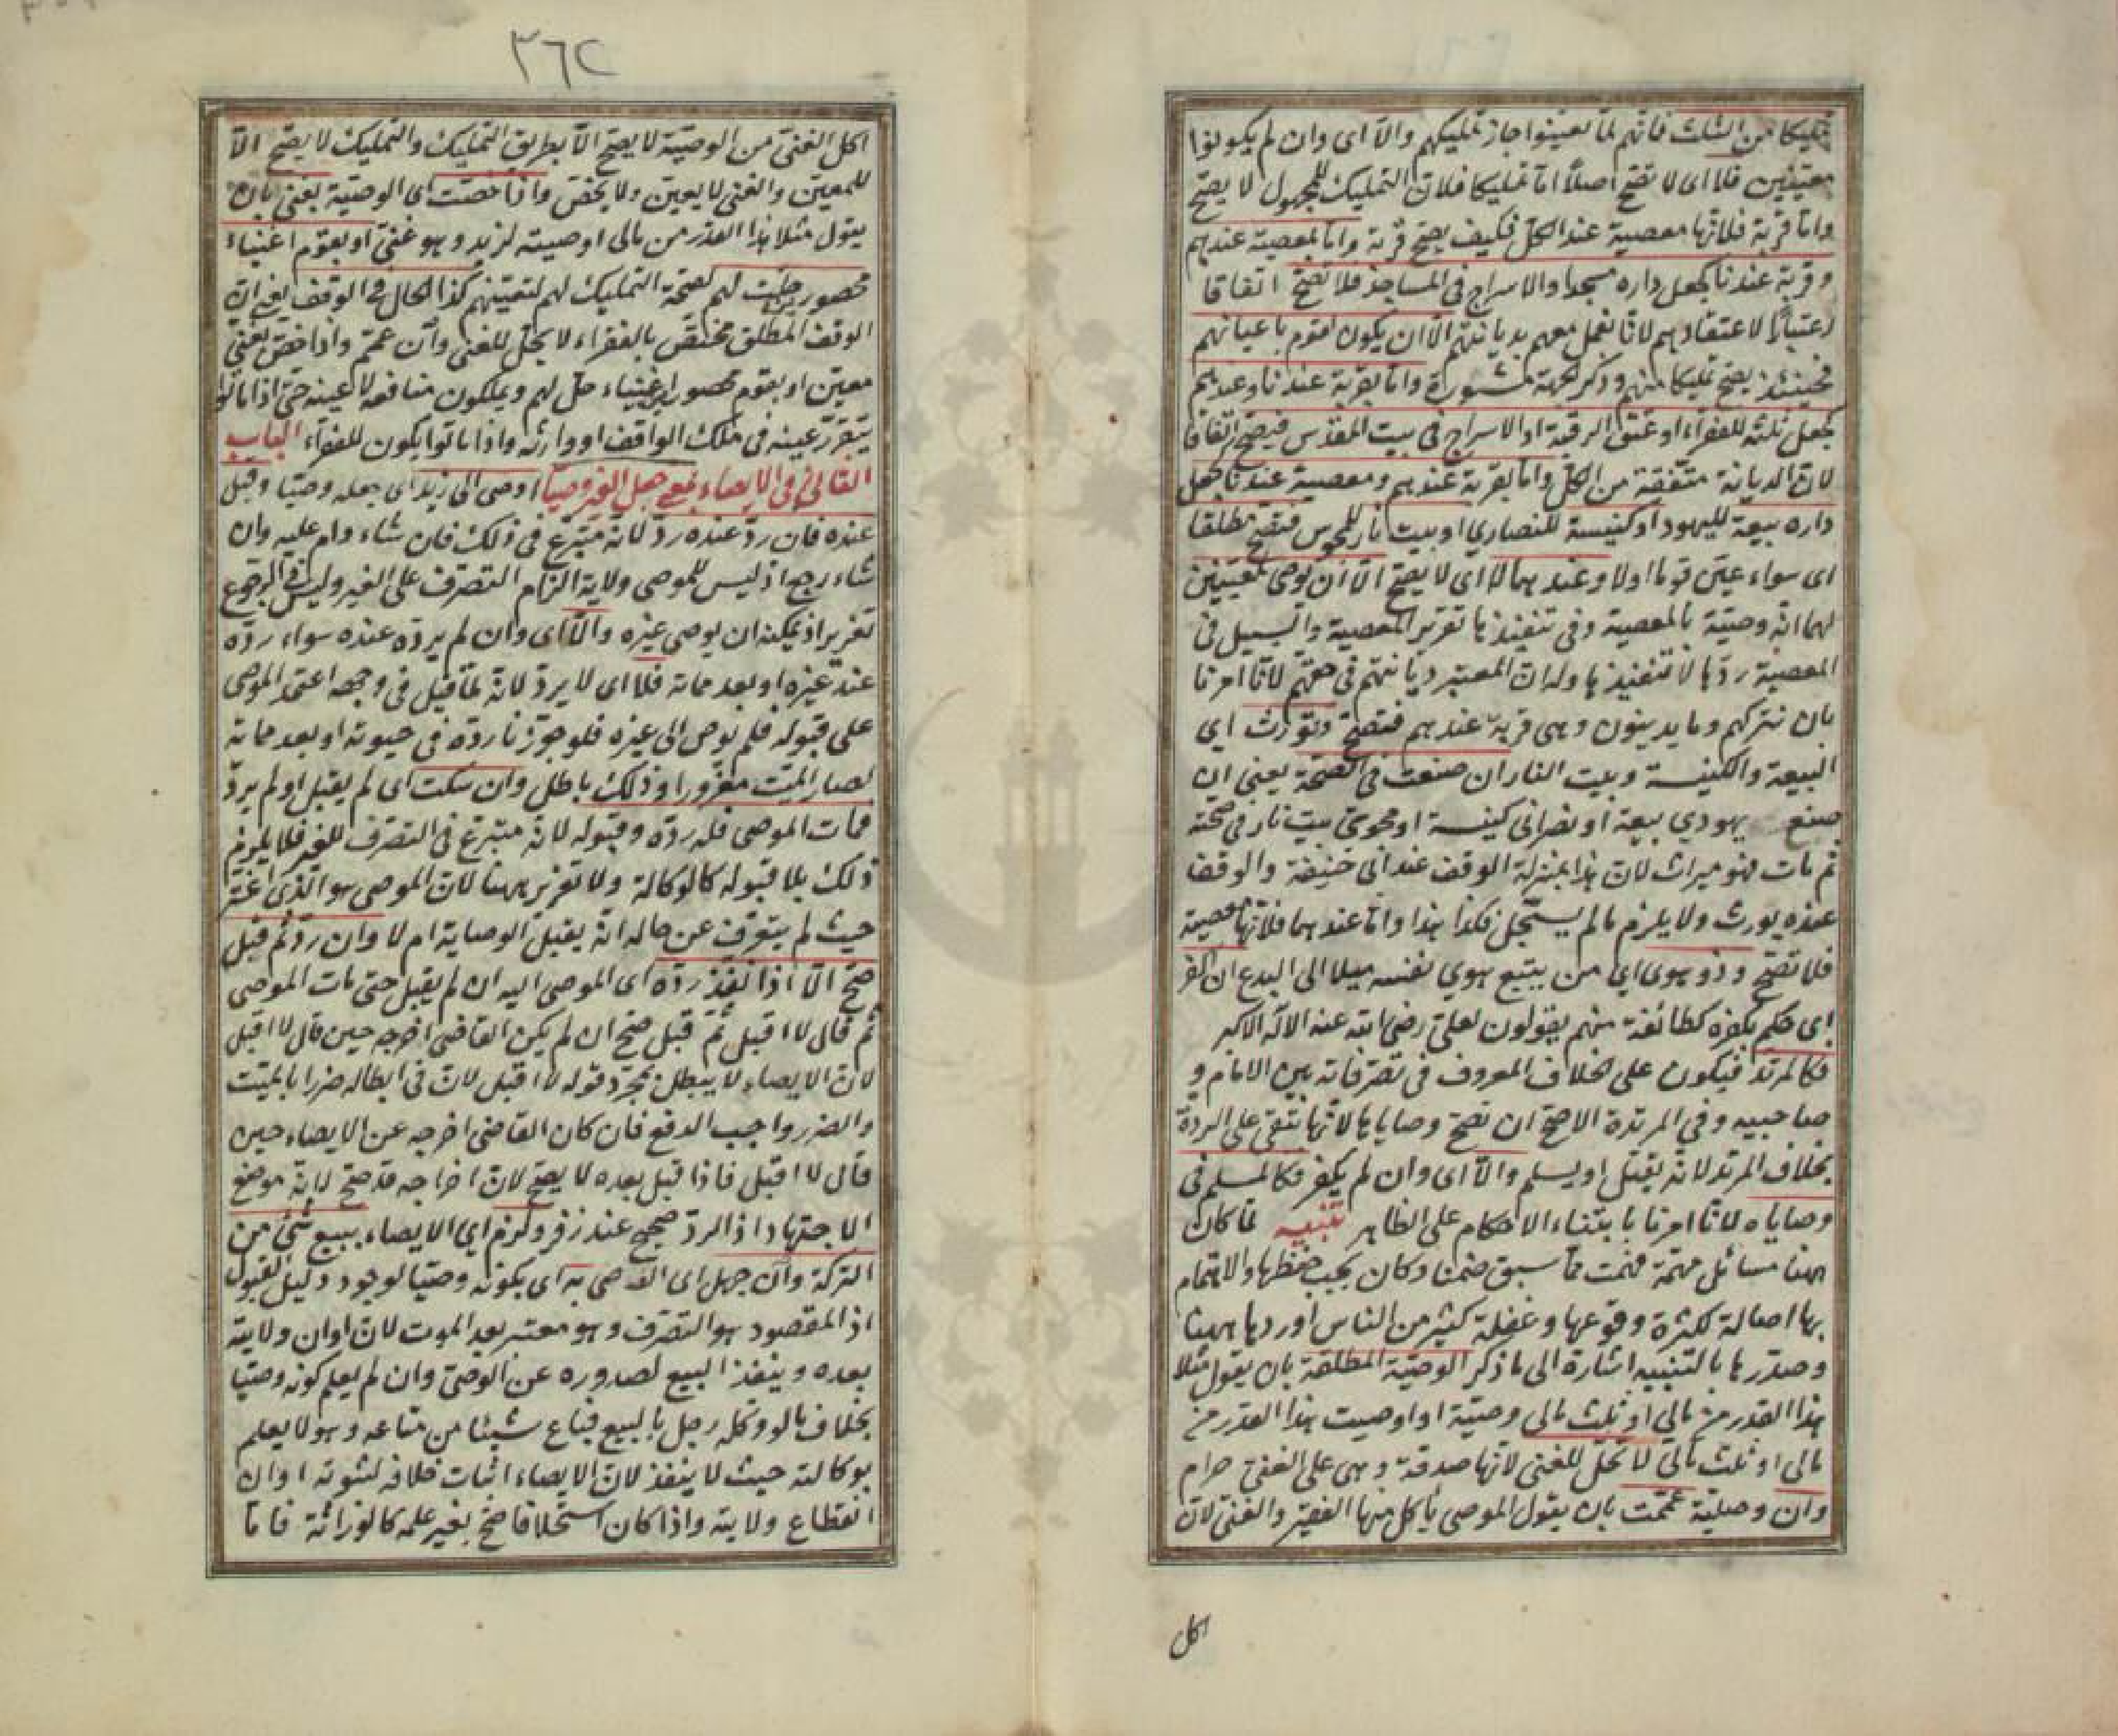 تمليكا من الثلث فانهم لما تعينوا جاز تمليكهم والا اى وان لم يكونوا
معينين فلا اى لا تصح اصلا اما تمليكا فلان التمليك للمجهول لا يصح
واما قربة فلانها معصية عند الكل فكيف يصح قربة واما بمعصية عندهم
وقربة عندنا كجعل داره مسجدا والاسراج فى المساجد فلا تصح اتفاقا
اعتبارا لاعتقادهم لانا نعمل معهم بديانتهم الا ان يكون لقوم باعيانهم
فحينئذ يصح تمليكا منهم وذكر الجهة مشورة واما بقربة عندنا وعندهم
كجعل ثلثه للفقراء او عتق الرقبة او الاسراج فى بيت المقدس فيصح اتفاقا
لان الديانة متفقة من الكل واما بقربة عندهم ومعصية عندنا كجعل
داره بيعة لليهود او كنيسة للنصارى او بيت نار للمجوس فتصح مطلقا
اى سواء عين قوما اولا وعندهما لا اى لا يصح الا ان يوصى لمعينين
لهما انه وصية بالمعصية وفى تنفيذها تقرير المعصية والسبيل فى
المعصية ردها لا تنفيذها وله ان المعتبر ديانتهم فى حقهم لانا امرنا
بان نتركهم وما يدينون وهى قربة عندهم فتصح وتورث اى
البيعة والكنيسة وبيت النار ان صنعت فى الصحة يعنى ان
صنع يهودى بيعة او نصرانى كنيسة او مجوسى بيت نار فى صحته
ثم مات فهو ميراث لان هذا بمنزلة الوقف عند ابى حنيفة والوقف
عنده يورث ولا يلزم ما لم يسجل فكذا هذا واما عندهما فلانها معصية
فلا تصح وذو هوى اى من يتبع هوى نفسه ميلا الى البدع ان اكفر
اى حكم بكفره كطائفة منهم يقولون لعلى رضى الله عنه الاله الاكبر
فكالمرتد فيكون على الخلاف المعروف فى تصرفاته بين الامام و
صاحبيه وفى المرتدة الاصح ان تصح وصاياها لانها تبقى على الردة
بخلاف المرتد لانه يقتل او يسلم والا اى وان لم يكفر فكالمسلم فى
وصاياه لانا امرنا بابتناء الاحكام على الظاهر تنبيه لما كان
ههنا مسائل مهمة فهمت مما سبق ضمنا وكان يجب حفظها والاهتمام
بها اصالة لكثرة وقوعها وغفلة كثير من الناس اوردها ههنا
وصدرها بالتنبيه اشارة الى ما ذكر الوصية المطلقة بان يقول مثلا
هذا القدر من مالى او ثلث مالى وصية او اوصيت هذا القدر من
مالى او ثلث مالى لا تحل للغنى لانها صدقة وهى على الغنى حرام
وان وصلية عممت بان يقول الموصى يأكل منها الفقير والغنى لان
اكل
٣٦٢
اكل الغنى من الوصية لا يصح الا بطريق التمليك والتمليك لا يصح الا
للمعين والغنى لا يعين ولا يخص واذا خصت اى الوصية بغنى بان
يقول مثلا هذا القدر من مالى اوصيته لزيد وهو غنى او بقوم اغنياء
محصورين حلت لهم لصحة التمليك لهم لتعينهم كذا الحال فى الوقف يعنى ان
الوقف المطلق مختص بالفقراء لا يحل للغنى وان عمم واذا خص بغنى
معين او بقوم محصورين اغنياء حل لهم ويملكون منافعه لا عينه حتى اذا ماتوا
يتقرر عينه فى ملك الواقف او وارثه واذا ماتوا يكون للفقراء الباب
الثانى فى الايصاء بمعنى جعل الغير وصيا اوصى الى زيد اى جعله وصيا وقبل
عنده فان رد عنده رد لانه متبرع فى ذلك فان شاء دام عليه وان
شاء رجع اذ ليس للموصى ولاية الزام التصرف على الغير وليس فى الرجوع
تغرير اذ يمكنه ان يوصى غيره والا اى وان لم يرده عنده سواء رده
عند غيره او بعد مماته فلا اى لا يرد لانه لما قبل فى وجهه اعتمد الموصى
على قبوله فلم يوص الى غيره فلو جوزنا رده فى حيوته او بعد مماته
لصار الميت مغرورا وذلك باطل وان سكت اى لم يقبل ولم يرد
فمات الموصى فله رده وقبوله لانه متبرع فى التصرف للغير فلا يلزم
ذلك بلا قبوله كالوكالة ولا تغرير ههنا لان الموصى هو الذى اغتر
حيث لم يتعرف عن حاله انه يقبل الوصاية ام لا وان رد ثم قبل
صح الا اذا نفذ رده اى الموصى اليه ان لم يقبل حتى مات الموصى
ثم قال لا اقبل ثم قبل صح ان لم يكن القاضى اخرجه حين قال لا اقبل
لان الايصاء لا يبطل بمجرد قوله لا اقبل لان فى ابطاله ضررا بالميت
والضرر واجب الدفع فان كان القاضى اخرجه عن الايصاء حين
قال لا اقبل فاذا قبل بعده لا يصح لان اخراجه قد صح لانه موضع
الاجتهاد اذ الرد صحيح عند زفر ولزم اى الايصاء ببيع شئ من
التركة وان جهل اى الوصى به اى بكونه وصيا لوجود دليل القبول
اذ المقصود هو التصرف وهو معتبر بعد الموت لان اوان ولايته
بعده وينفذ البيع لصدوره عن الوصى وان لم يعلم كونه وصيا
بخلاف ما لو وكله رجل بالبيع فباع شيئا من متاعه وهو لا يعلم
بوكالته حيث لا ينفذ لان الايصاء اثبات خلافة لثبوته اوان
انقطاع ولايته واذا كان استخلافا صح بغير علمه كالوراثة فاما